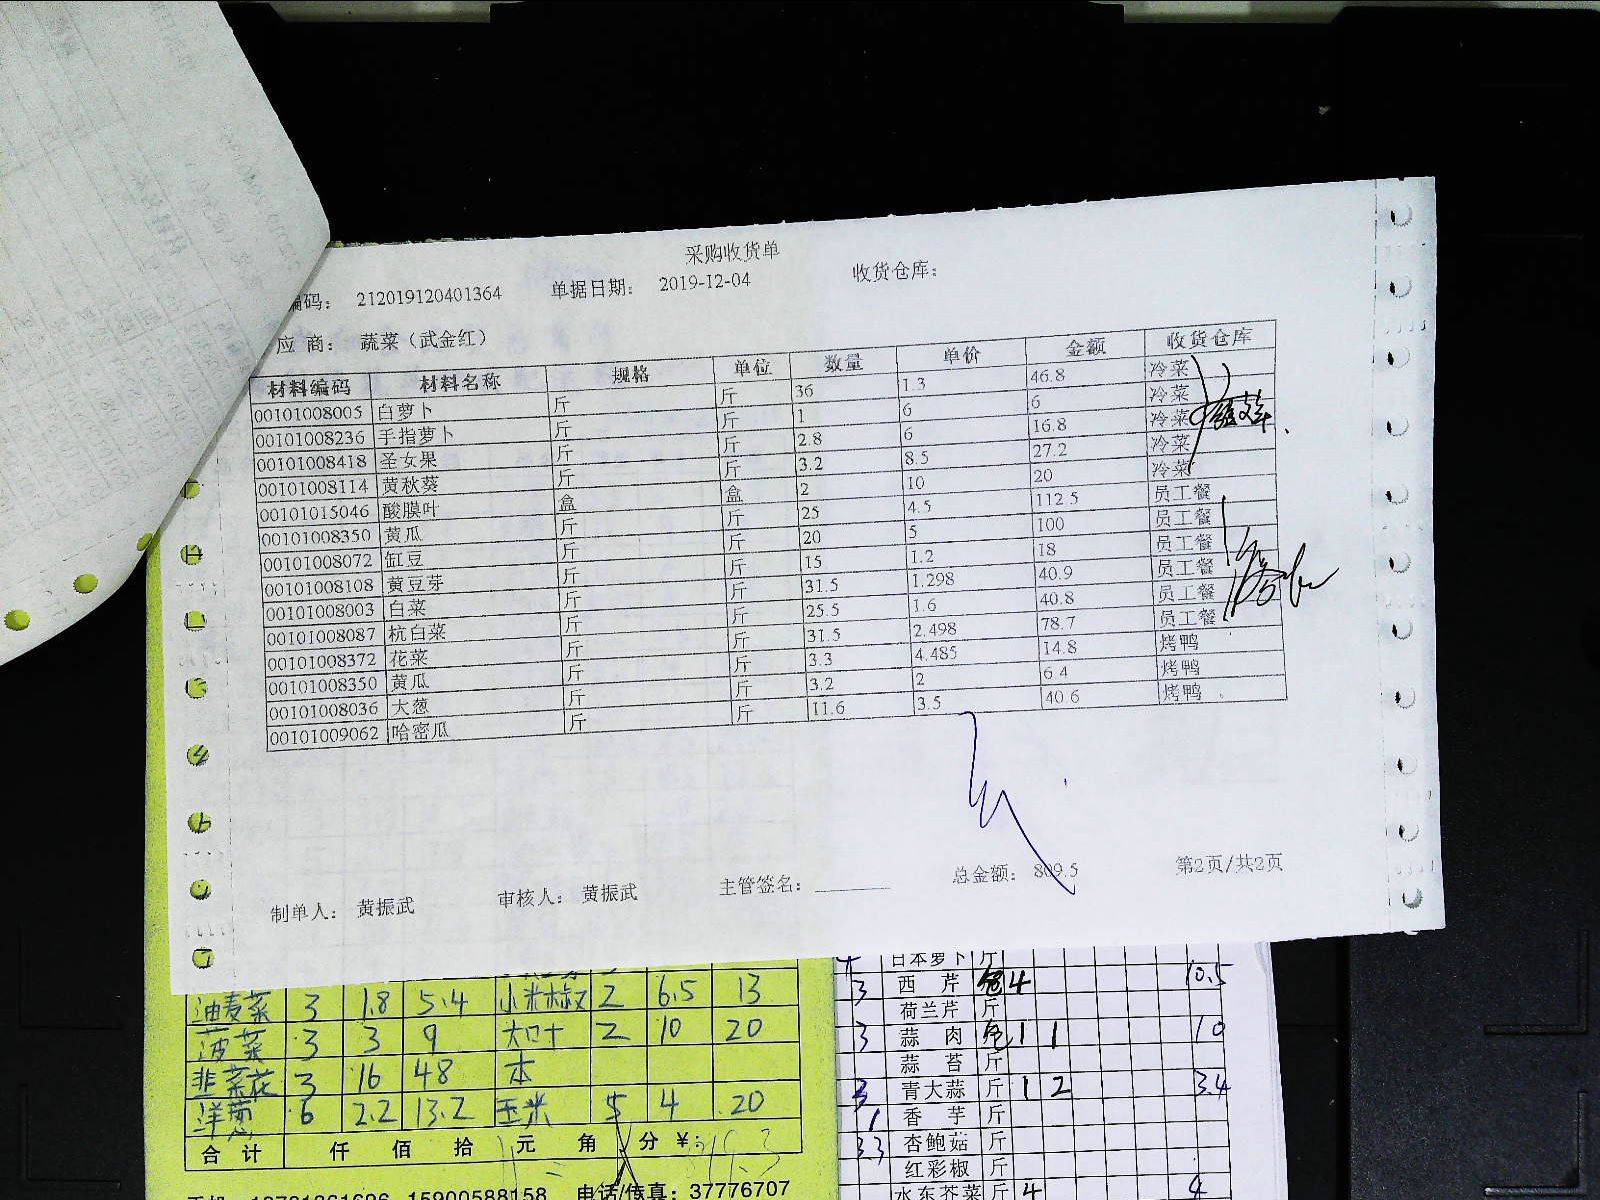 采购收货单
编码： 212019120401364 单据日期： 2019-12-04 收货仓库：
应 商： 蔬菜（武金红）
材料编码 材料名称 规格 单位 数量 单价 金额 收货仓库
00101008005 白萝卜 斤 斤 36 1.3 46.8 冷菜
00101008236 手指萝卜 斤 斤 1 6 6 冷菜
00101008418 圣女果 斤 斤 2.8 6 16.8 冷菜
00101008114 黄秋葵 斤 斤 3.2 8.5 27.2 冷菜
00101015046 酸膜叶 盒 盒 2 10 20 冷菜
00101008350 黄瓜 斤 斤 25 4.5 112.5 员工餐
00101008072 缸豆 斤 斤 20 5 100 员工餐
00101008108 黄豆芽 斤 斤 15 1.2 18 员工餐
00101008003 白菜 斤 斤 31.5 1.298 40.9 员工餐
00101008087 杭白菜 斤 斤 25.5 1.6 40.8 员工餐
00101008372 花菜 斤 斤 31.5 2.498 78.7 员工餐
00101008350 黄瓜 斤 斤 3.3 4.485 14.8 烤鸭
00101008036 大葱 斤 斤 3.2 2 6.4 烤鸭
00101009062 哈密瓜 斤 斤 11.6 3.5 40.6 烤鸭
制单人： 黄振武 审核人： 黄振武 主管签名： 总金额： 809.5 第2页/共2页
油麦菜 3 1.8 5.4 小米椒 2 6.5 13
菠菜 3 3 9 大叶 2 10 20
韭菜花 3 16 48 本
洋葱 6 2.2 13.2 玉米 5 4 20
合 计 仟 佰 拾 元 角 分 ￥：
15900588158 电话/传真：37776707
日本萝卜 斤
3 西 芹 4 10.5
荷兰芹 斤
3 蒜 肉 包 1 1 10
蒜 苔 斤
3 青大蒜 斤 1 2 3.4
1 香 芋 斤
3.3 杏鲍菇 斤
红彩椒 斤
水东芥菜 斤 4 4